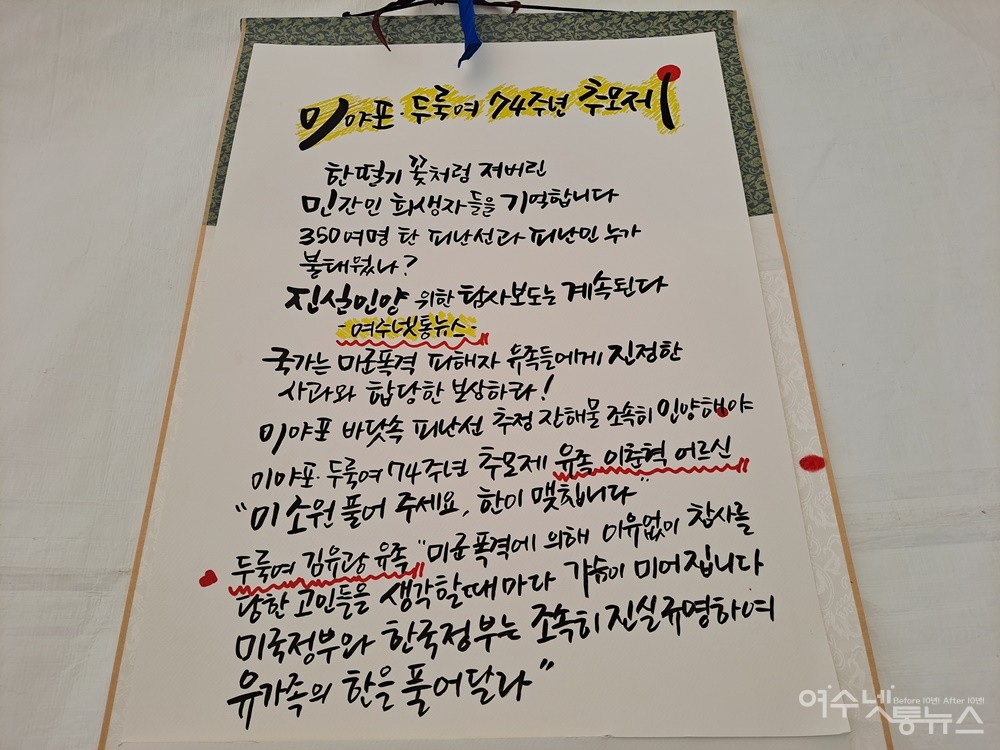 미야포·두룩여 74주년 추모제
한떨기 꽃처럼 져버린
민간인 희생자들을 기억합니다
350여명 탄 피난선과 피난민 누가
불태웠나?
진실인양 위한 탐사보도는 계속된다
-여수넷통뉴스-
국가는 미군폭격 피해자 유족들에게 진정한
사과와 합당한 보상하라!
이야포 바닷속 피난선 추정 잔해물 조속히 인양해야
미야포·두룩여 74주년 추모제 유족 이춘혁 어르신
"미 소원 풀어 주세요, 한이 맺힙니다"
두룩여 김유광 유족 "미군폭격에 의해 이유없이 참사를
당한 고인들을 생각할때마다 가슴이 미어집니다
미국정부와 한국정부는 조속히 진실규명하여
유가족의 한을 풀어달라"
여수넷통뉴스
Before 10년! After 10년!